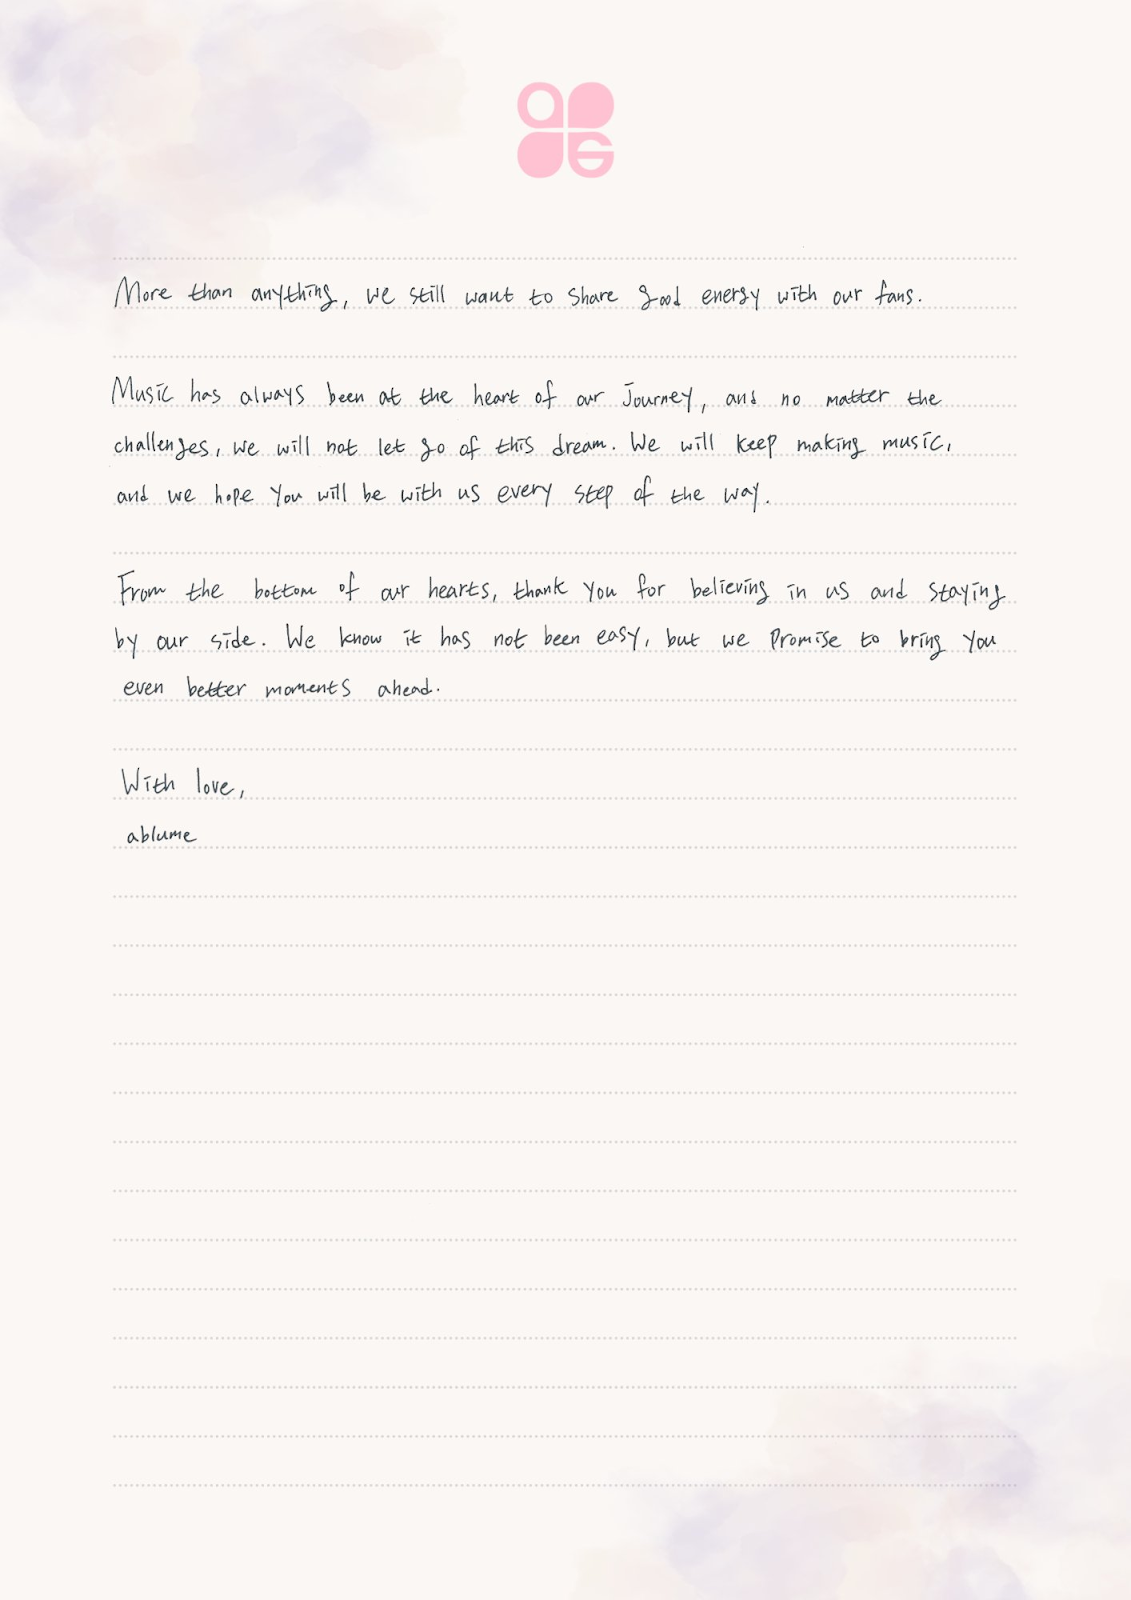 More than anything, we still want to share good energy with our fans.
Music has always been at the heart of our Journey, and no matter the
challenges, we will not let go of this dream. We will keep making music,
and we hope you will be with us every step of the way.
From the bottom of our hearts, thank you for believing in us and staying
by our side. We know it has not been easy, but we promise to bring you
even better moments ahead.
With love,
ablume